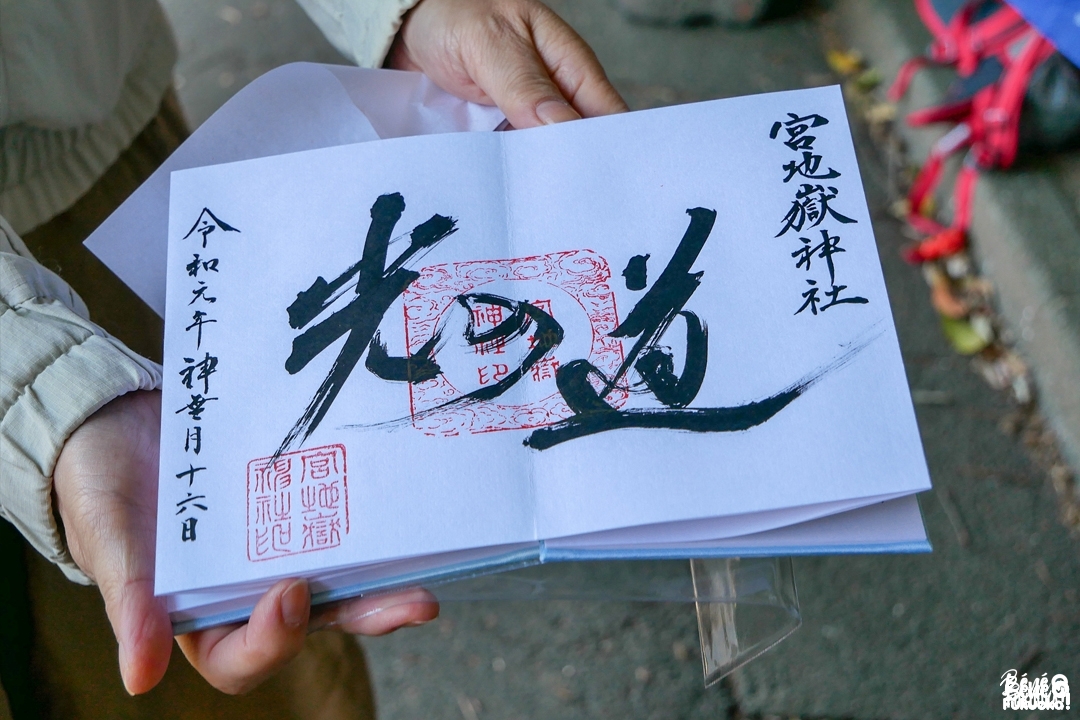 宮地嶽神社
光の道
令和元年 神無月十六日
宮地嶽
神社印
宮地嶽
神社印
Béné
FUKUOKA!